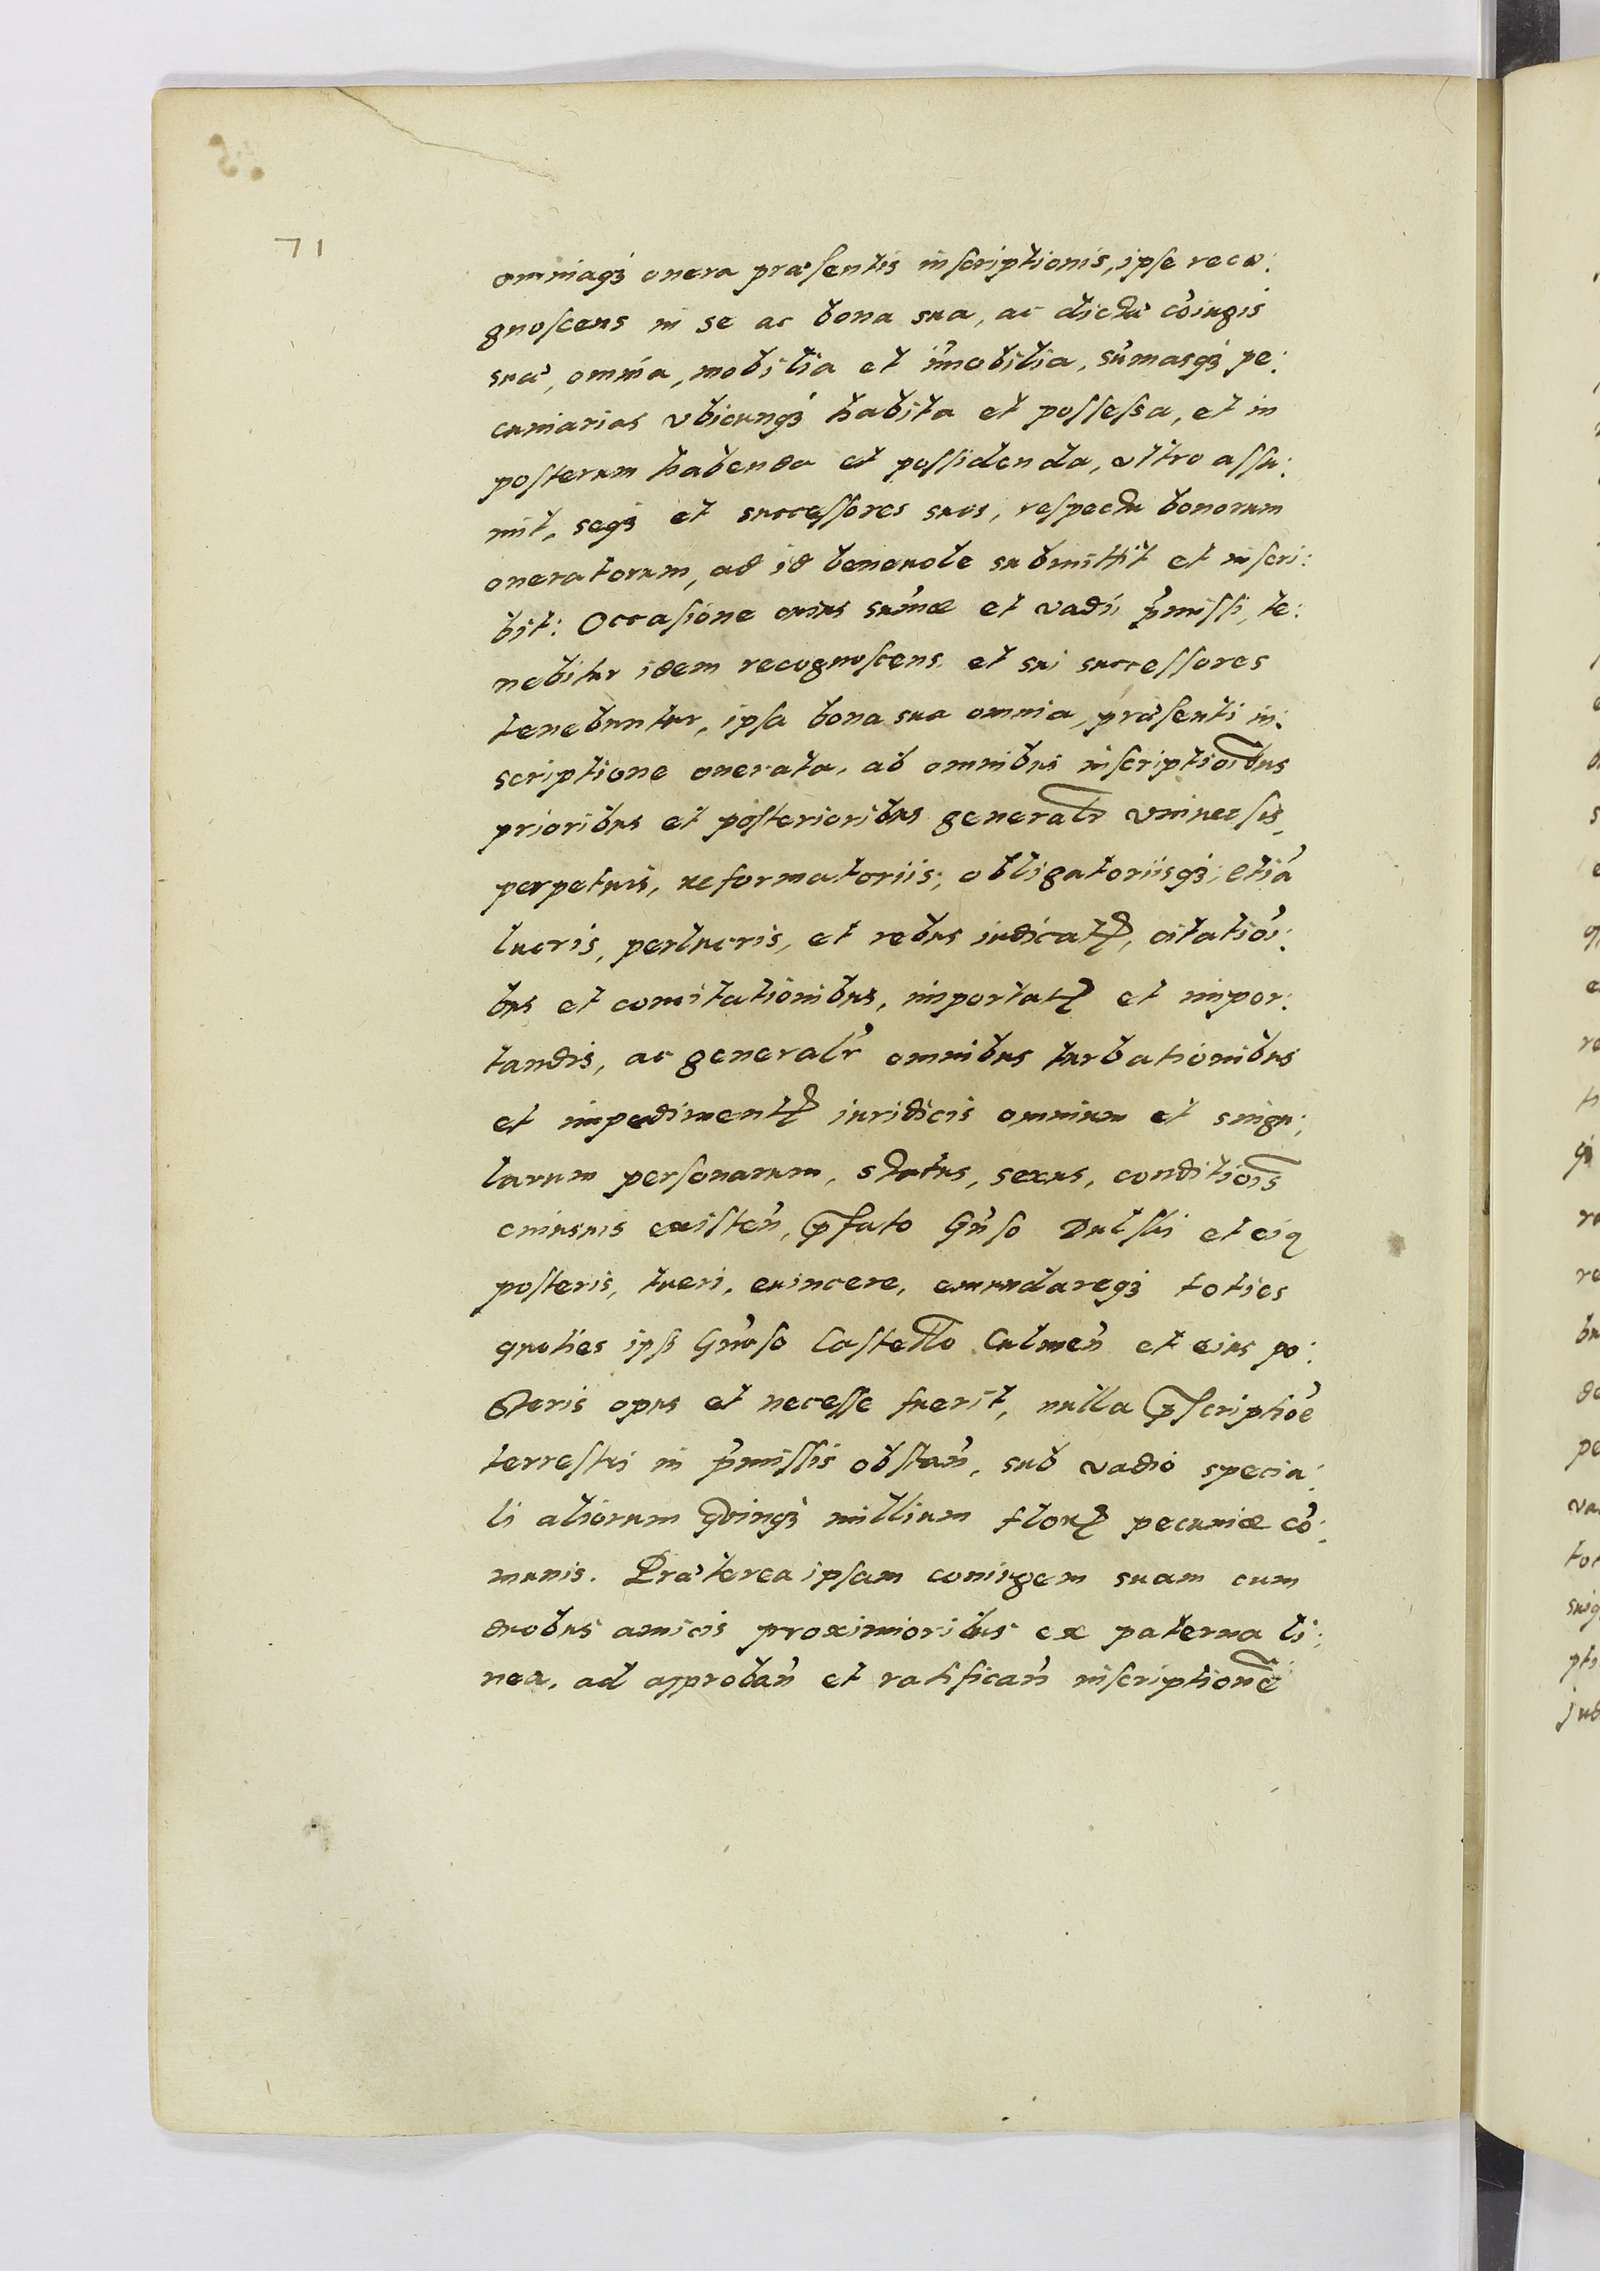 71
omniaqȝ onera præsentis inscriptionis, ipse reco:
gnoscens in se ac bona sua, ac dictæ cõiugis
suæ, omnia, mobilia et im̃obilia, sum̃asqȝ pe:
cuniarias vbicunqȝ habita et possessa, et in
posterum habenda et possidenda, vltro assu:
mit, seqȝ et successores suos, respectu bonorum
oneratorum, ad id beneuole submittit et inscri:
bit: Occasione cuius sum̃æ et vadii p̃missi, te:
nebitur idem recognoscens et sui successores
tenebuntur, ipsa bona sua omnia, præsenti in:
scriptione onerata, ab omnibus inscriptiõibus
prioribus et posterioribus generalr̃ vniuersis,
perpetuis, reformatoriis, obligatoriisqȝ, etiã
lucris, perlucris, et rebus iudicatꝭ, citatiõi:
bus et concitationibus, importatꝭ et impor:
tandis, ac generalr̃ omnibus turbationibus
et impedimentꝭ iuridicis omnium et singu:
larum personarum, status, sexus, conditiõis
cuiusuis existeñ, p̃fato Gñso Dulski et eiꝰ
posteris, tueri, euincere, emundareqȝ toties
quoties ipsi Gñoso Castello Culmeñ et eius po:
steris opus et necesse fuerit, nulla p̃scriptiõe
terrestri in p̃missis obstañ, sub vadio specia:
li aliorum quinqȝ millium florꝭ pecuniæ cõ:
munis. Præterea ipsam coniugem suam cum
duobus amicis proximioribus ex paterna li:
nea, ad approbañ et ratificañ inscriptionẽ